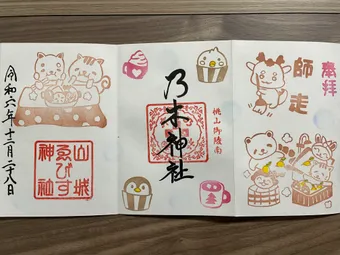 奉拝
師走
桃山御陵南
乃木神社
山城
ゑびす
神社
令和六年十二月二十八日